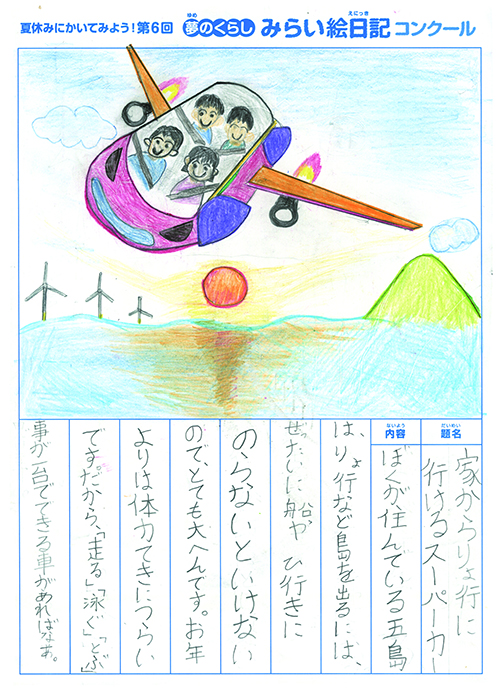 夏休みにかいてみよう!第6回 夢のくらし みらい絵日記 コンクール
ゆめ
えにっき
題名
だいめい
家からりょ行に
行けるスーパーカー
内容
ないよう
ぼくが、住んでいる五島
は、りょ行など島を出るには、
ぜったいに船や ひ行きに
のらないといけない
ので、とても大へんです。お年
よりは体力てきにつらい
です。だから、「走る」「泳ぐ」「とぶ」
事が一台でできる車があればなあ。